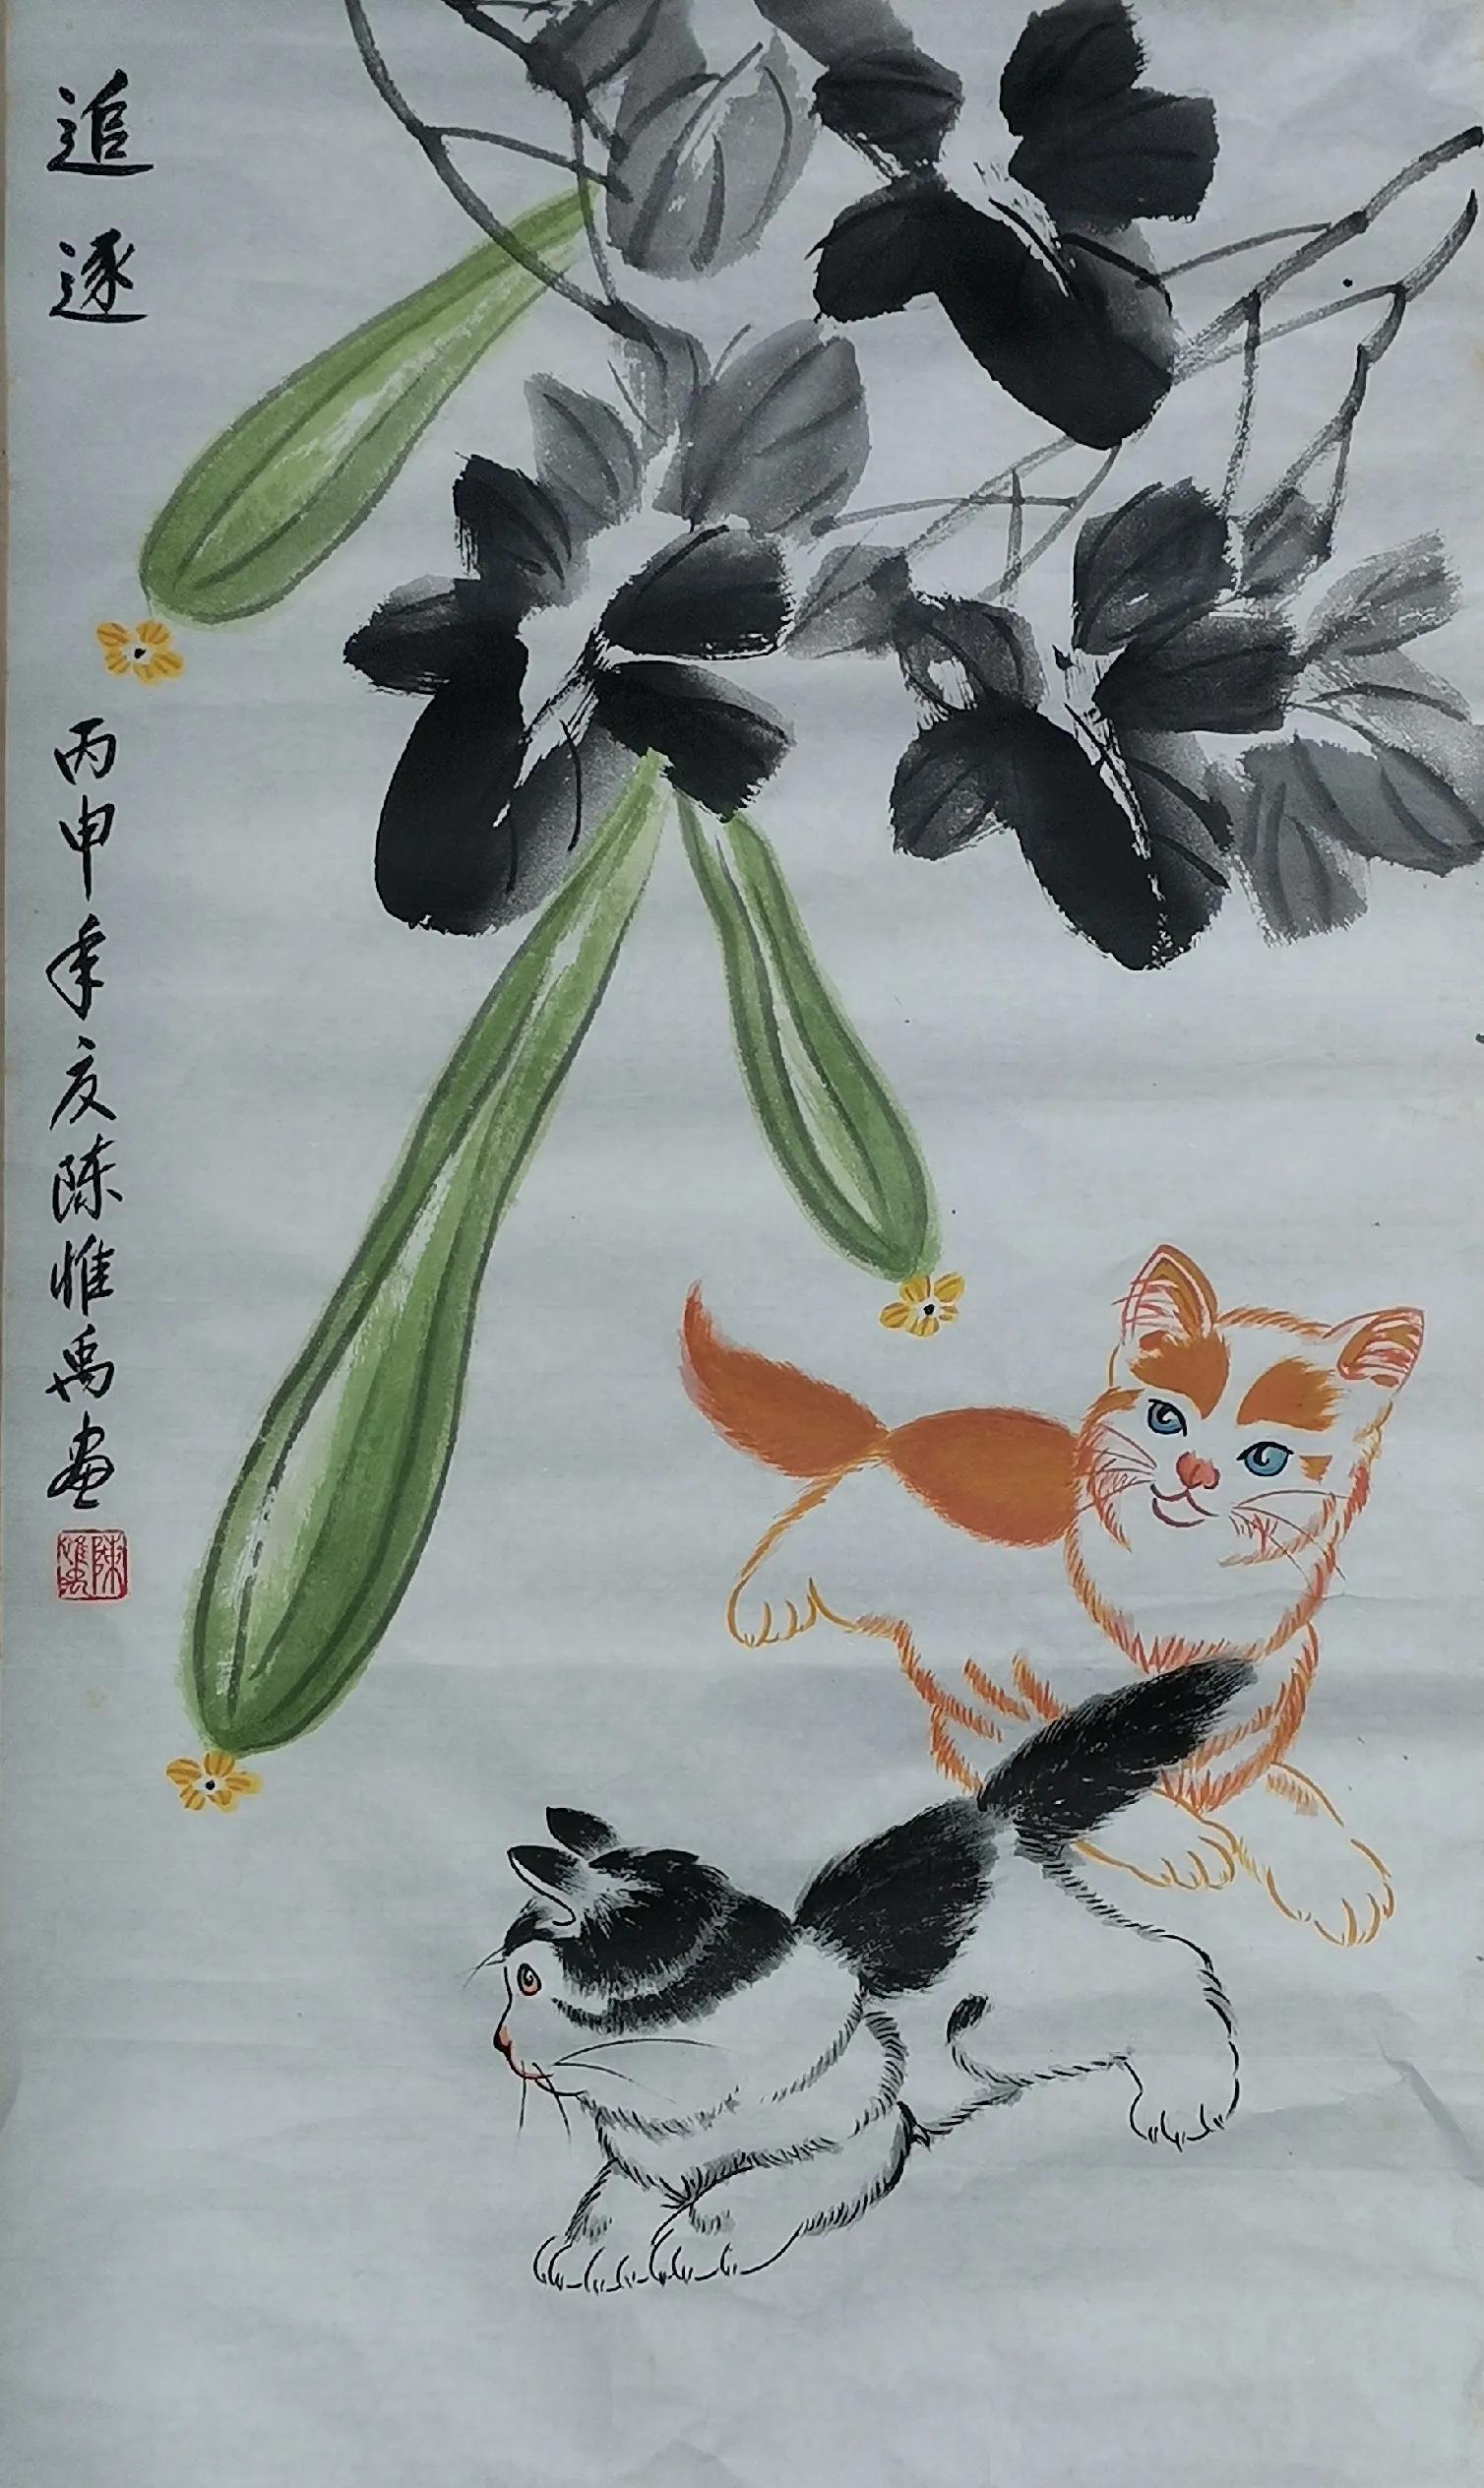 追逐
丙申年夏陈惟禹画
陈惟禹